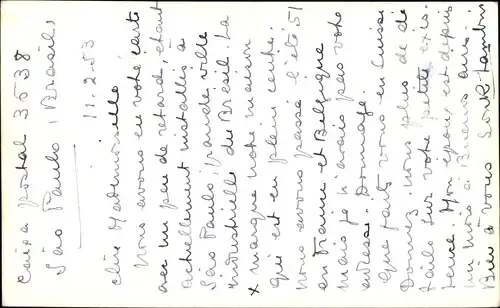 Caixa postal 3538
São Paulo, Brasil,
11.2.53
Chère Mademoiselle,
Nous avons eu votre carte
avec un peu de retard, étant
actuellement installés a
São Paulo, grande ville
industrielle du Brésil. La
x marque notre maison
qui est en plein centre.
Nous avons passé l'été 51
en France et Belgique
mais je n'avais pas votre
adresse. Dommage.
Que faites vous en Suisse
Donnez nous plus de dé
tails sur votre petite exis-
tence. Mon époux, est depuis
un mois a Buenos aires.
Bien a vous